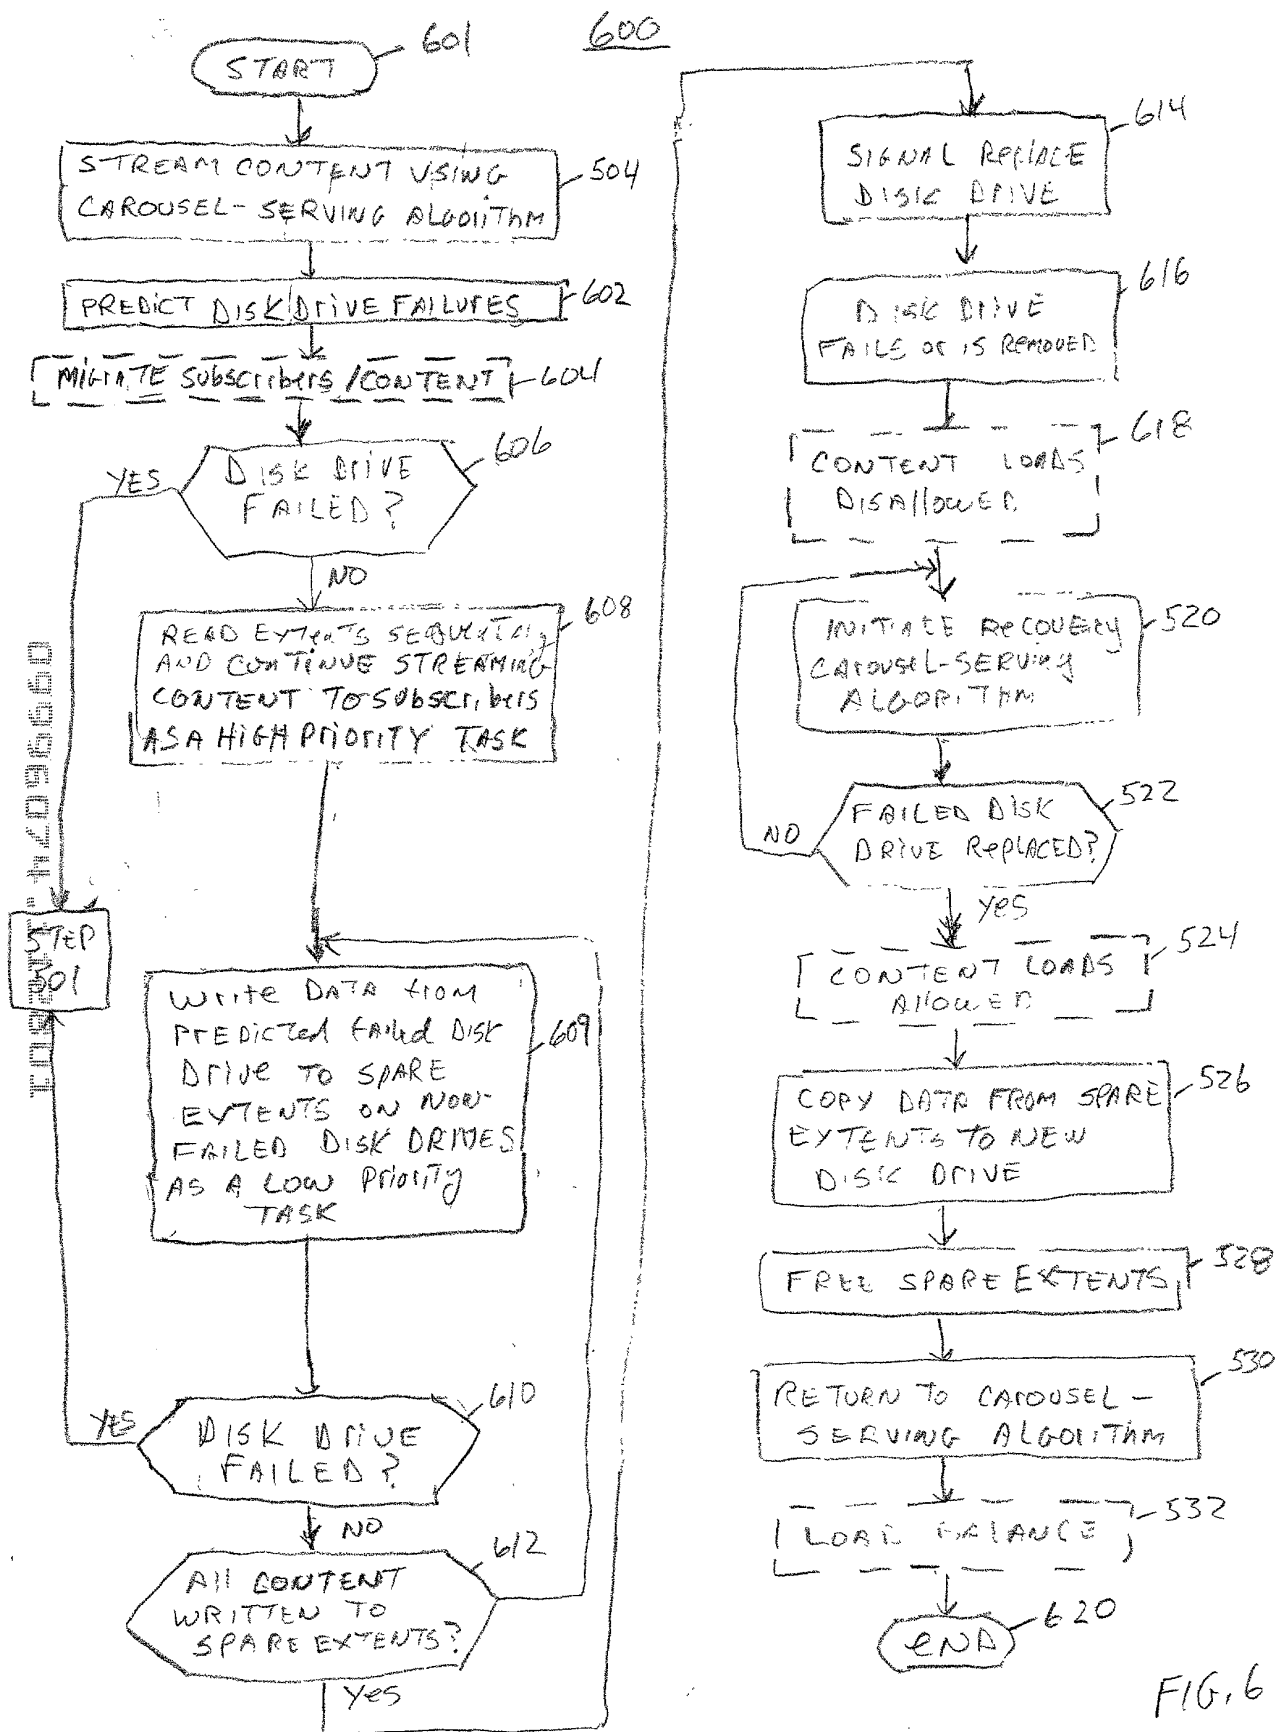 600
START
601
STREAM CONTENT USING
CAROUSEL-SERVING ALGORITHM
504
PREDICT DISK DRIVE FAILURES
602
MIGRATE SUBSCRIBERS/CONTENT
604
DISK DRIVE
FAILED?
606
YES
NO
READ EXTENTS SEQUENTIALLY
AND CONTINUE STREAMING
CONTENT TO SUBSCRIBERS
AS A HIGH PRIORITY TASK
608
STEP
501
WRITE DATA FROM
PREDICTED FAILED DISK
DRIVE TO SPARE
EXTENTS ON NON-
FAILED DISK DRIVES
AS A LOW PRIORITY
TASK
609
DISK DRIVE
FAILED?
610
YES
NO
All CONTENT
WRITTEN TO
SPARE EXTENTS?
612
Yes
SIGNAL REPLACE
DISK DRIVE
614
DISK DRIVE
FAILE OR IS REMOVED
616
CONTENT LOADS
DISALLOWED
618
INITIATE RECOVERY
CAROUSEL-SERVING
ALGORITHM
520
FAILED DISK
DRIVE REPLACED?
522
NO
Yes
CONTENT LOADS
ALLOWED
524
COPY DATA FROM SPARE
EXTENTS TO NEW
DISK DRIVE
526
FREE SPARE EXTENTS
528
RETURN TO CAROUSEL-
SERVING ALGORITHM
530
LOAD BALANCE
532
END
620
FIG. 6